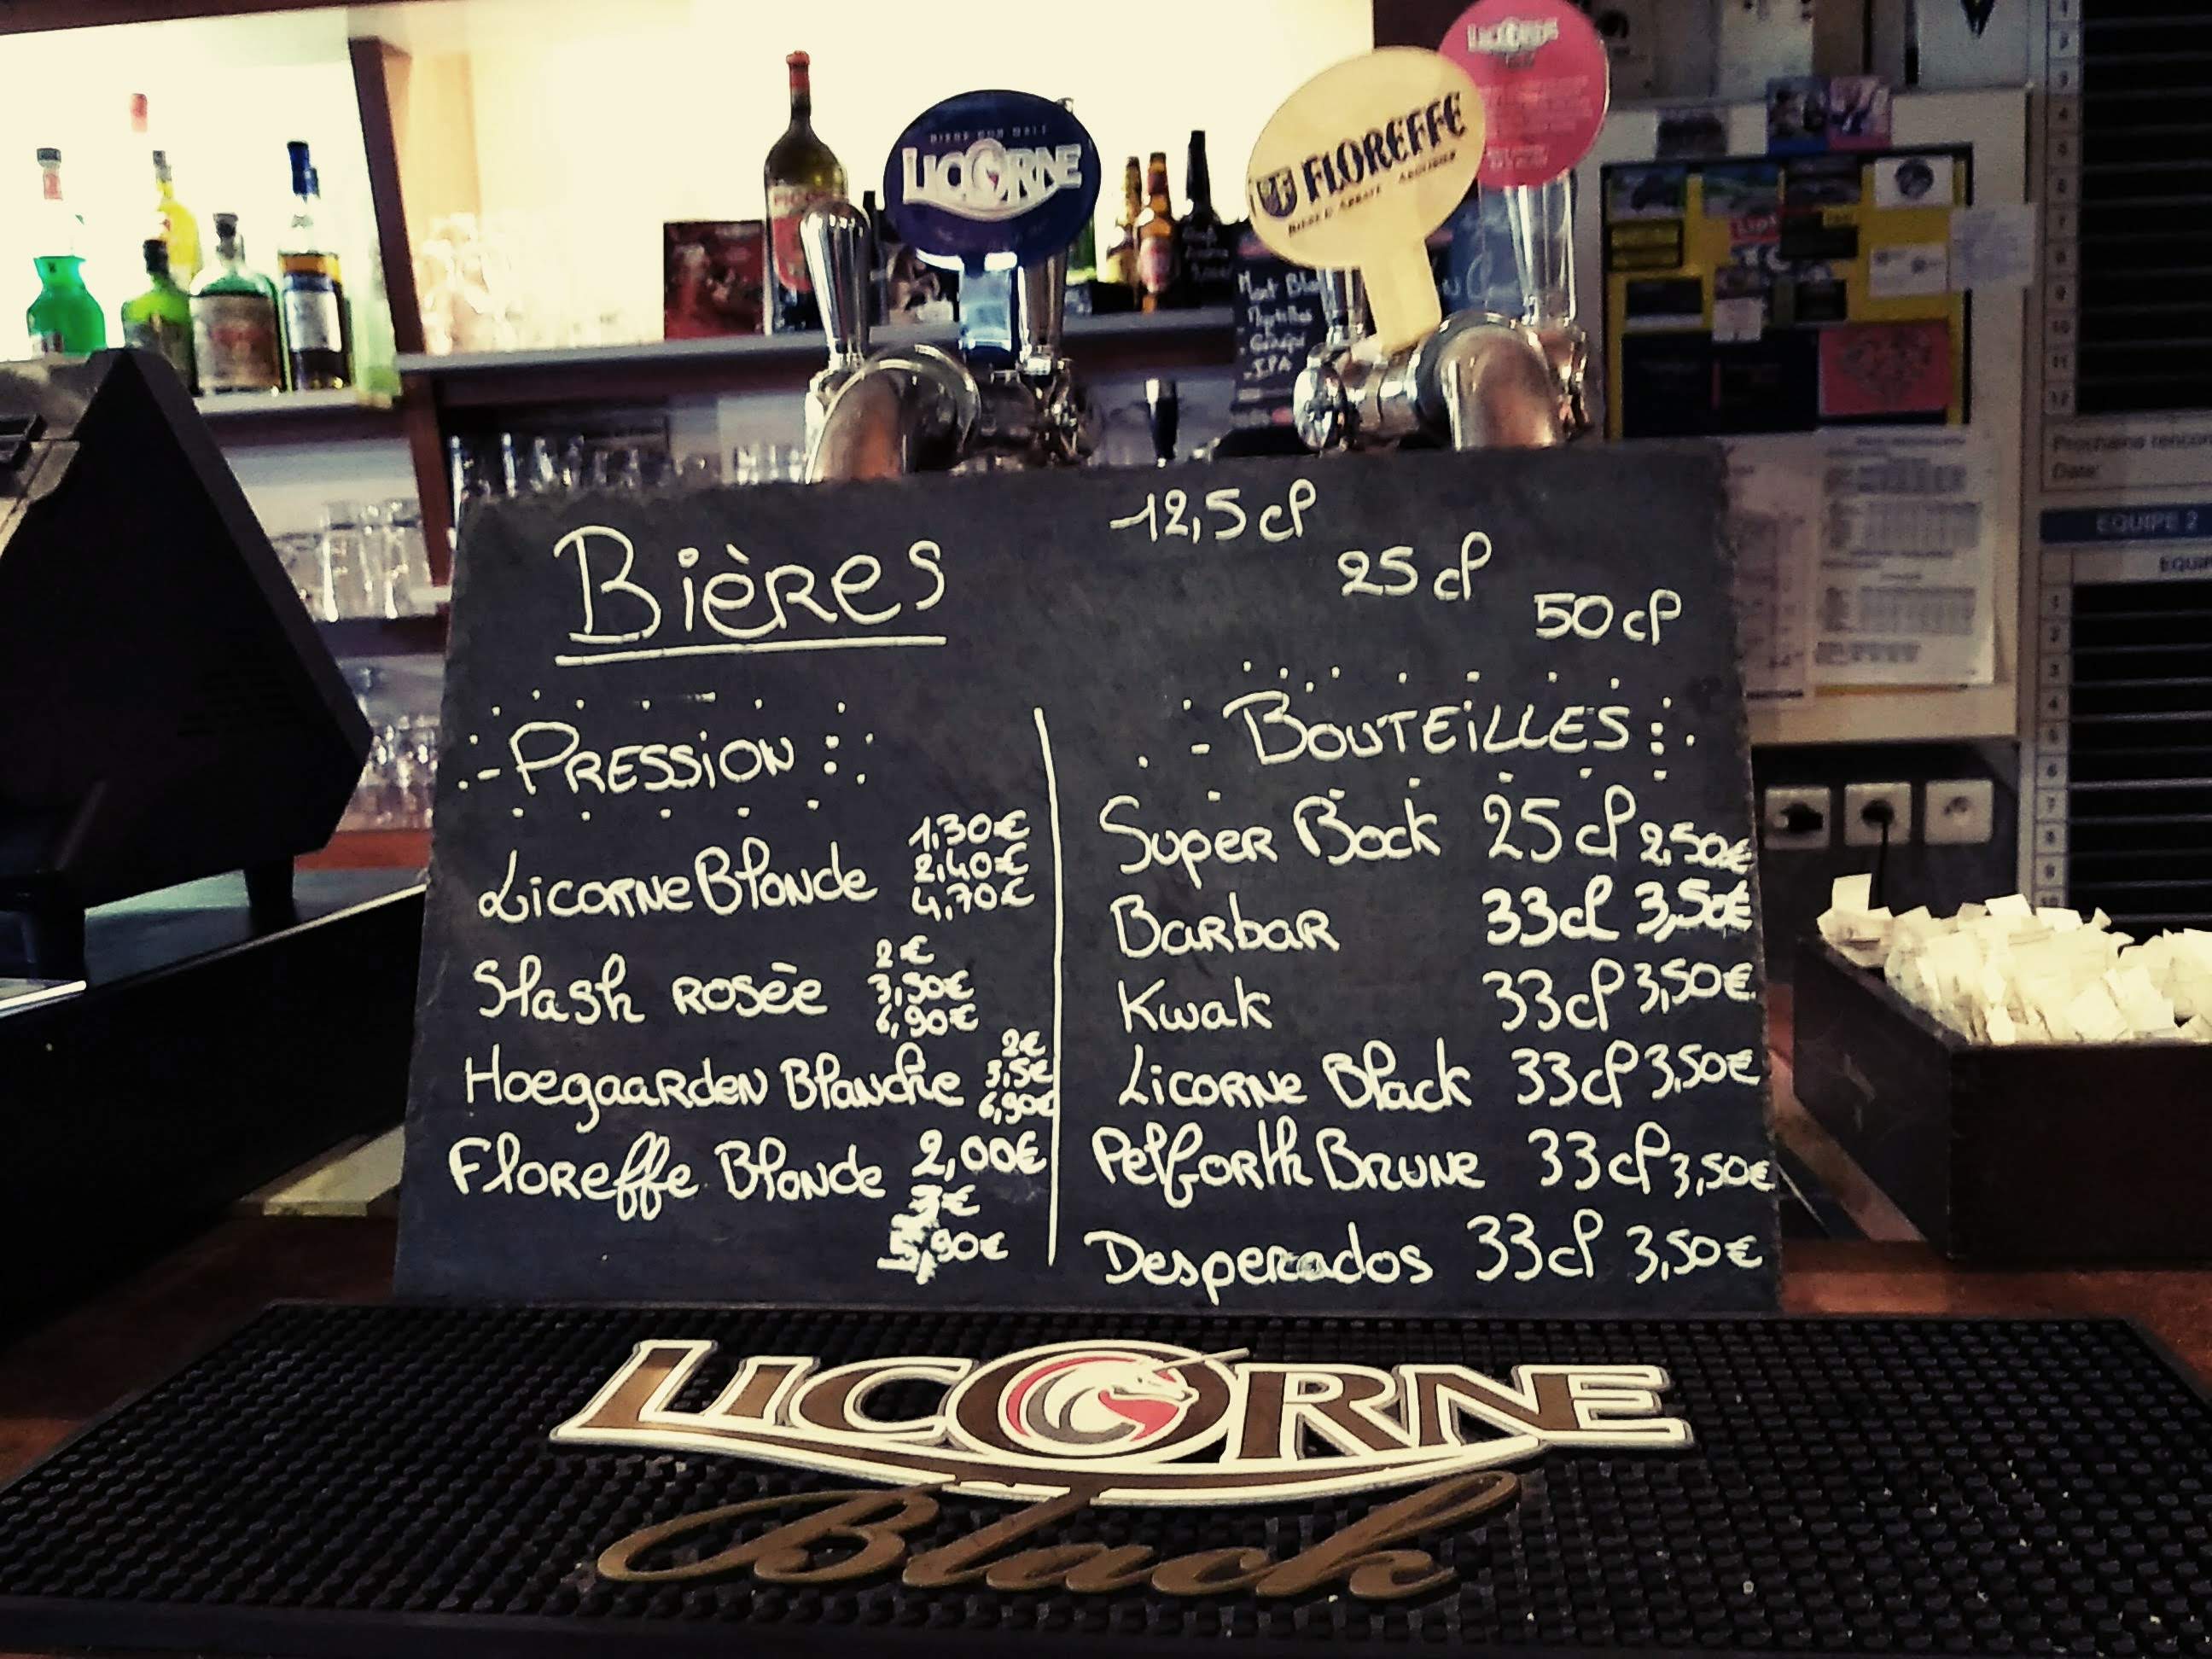 LICORNE
FLOREFFE
LICORNE
Mont
Myrtilles
Génépi
IPA
Prochaine
Date:
EQUIPE 2
Bières
12,5 cl
25 cl
50 cl
- Pression
Licorne Blonde 1,30€
2,40€
4,70€
Slash rosée 2€
3,50€
6,90€
Hoegaarden Blanche 2€
3,5€
6,90€
Floreffe Blonde 2,00€
3€
5,90€
- Bouteilles
Super Bock 25 cl 2,50€
Barbar 33cl 3,50€
Kwak 33cl 3,50€
Licorne Black 33cl 3,50€
Pelforth Brune 33cl 3,50€
Desperados 33cl 3,50€
LICORNE
Black